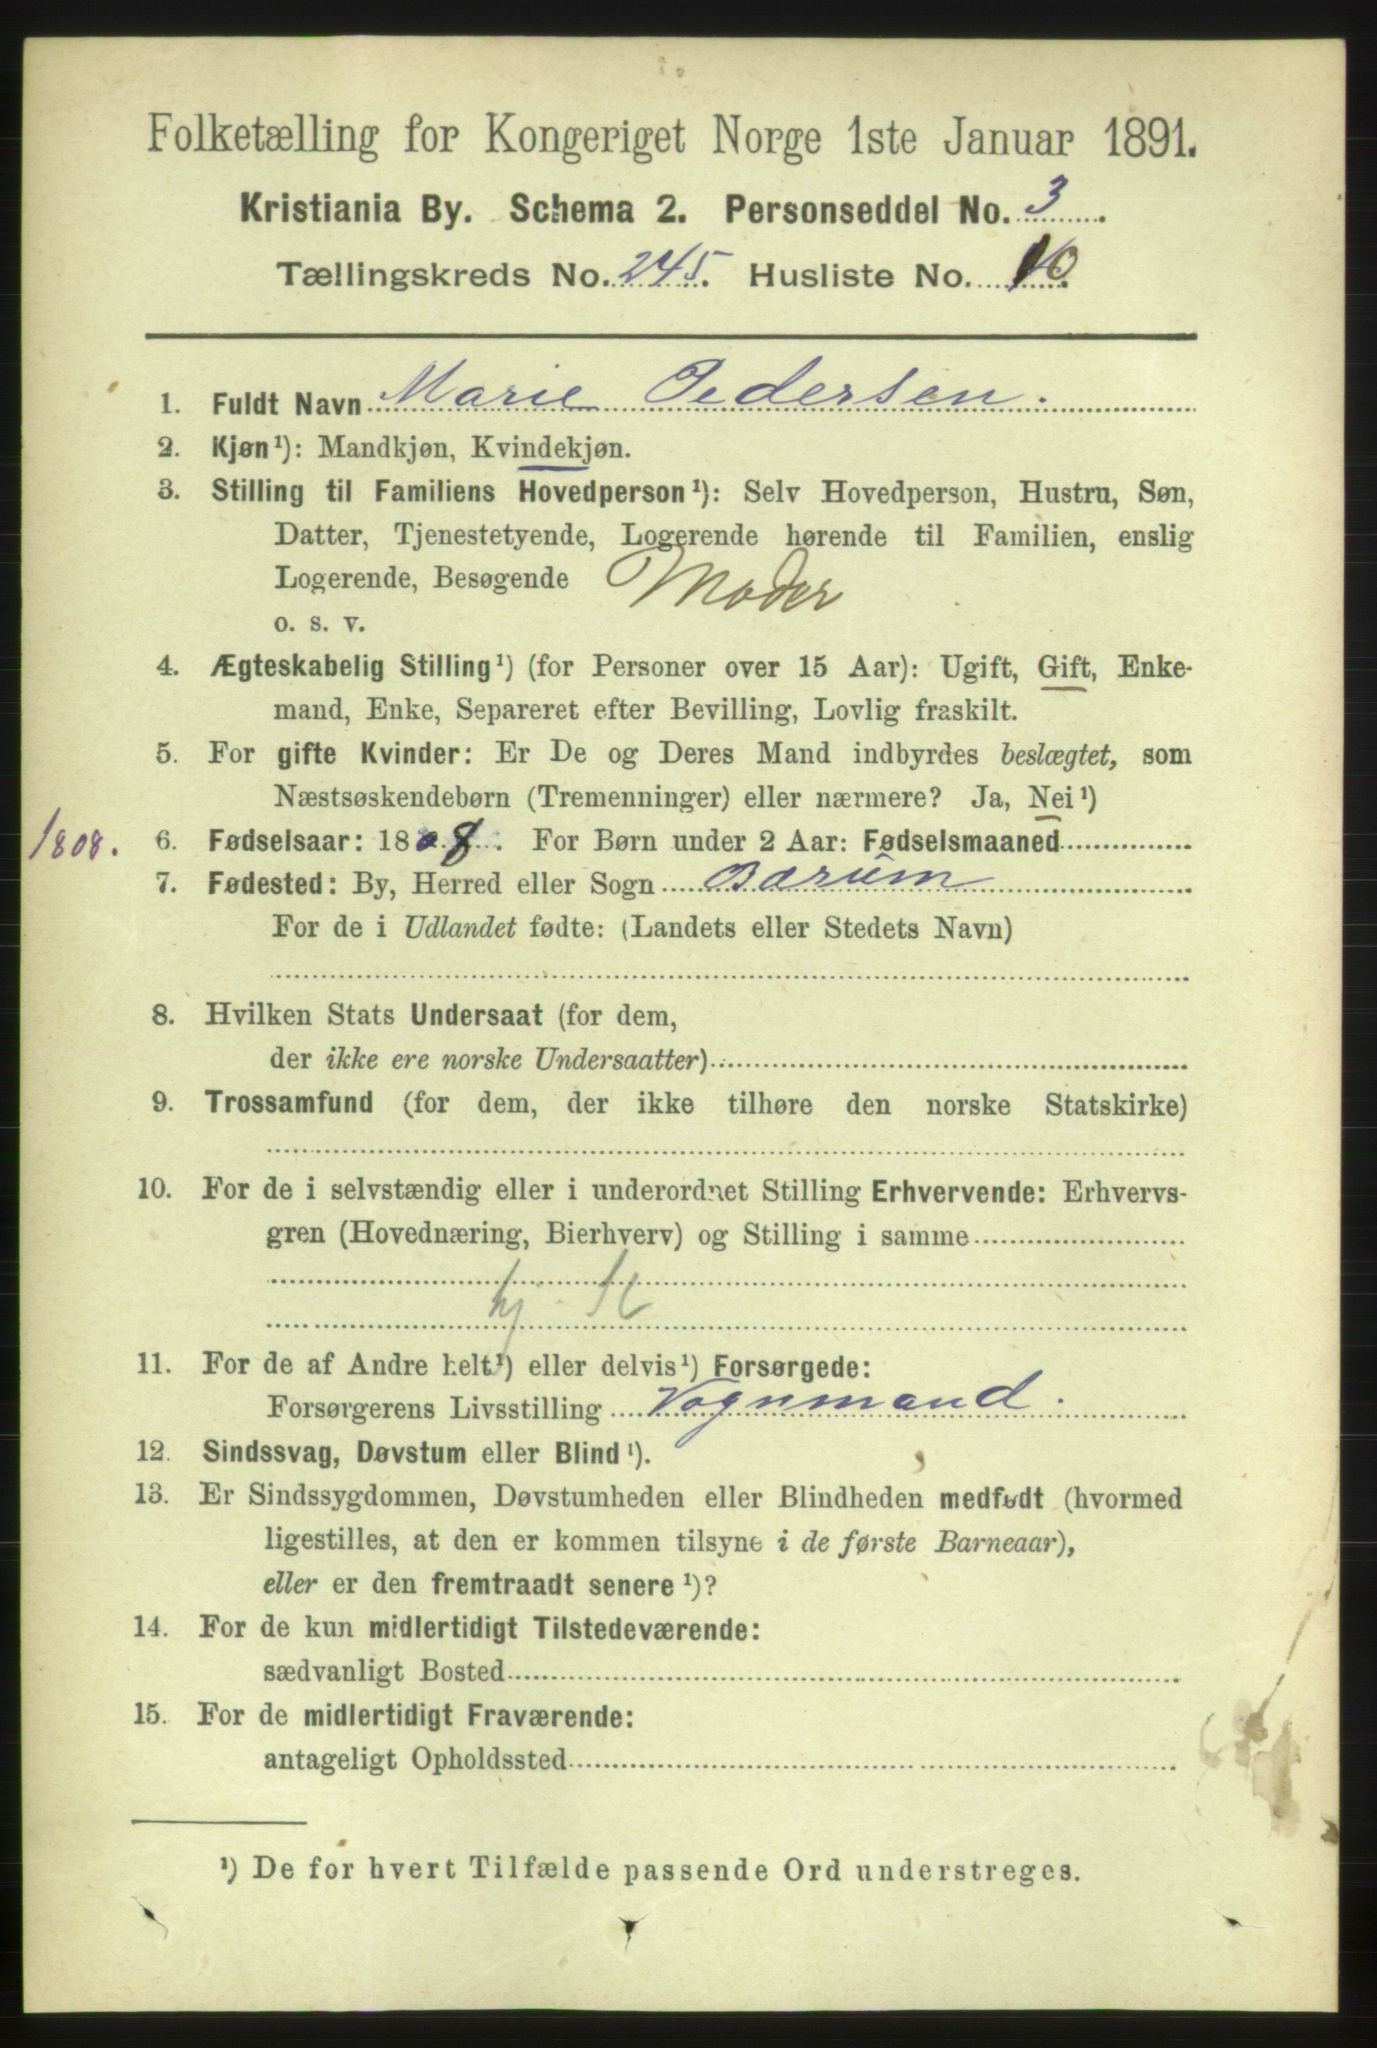 Folketælling for Kongeriget Norge 1ste Januar 1891.
Kristiania By. Schema 2. Personseddel No. 3.
Tællingskreds No. 245. Husliste No. 10.
1. Fuldt Navn Marie Pedersen.
2. Kjøn¹): Mandkjøn, Kvindekjøn.
3. Stilling til Familiens Hovedperson¹): Selv Hovedperson, Hustru, Søn,
Datter, Tjenestetyende, Logerende hørende til Familien, enslig
Logerende, Besøgende Moder
o. s. v.
4. Ægteskabelig Stilling¹) (for Personer over 15 Aar): Ugift, Gift, Enke-
mand, Enke, Separeret efter Bevilling, Lovlig fraskilt.
5. For gifte Kvinder: Er De og Deres Mand indbyrdes beslægtet, som
Næstsøskendebørn (Tremenninger) eller nærmere? Ja, Nei¹)
1808. 6. Fødselsaar: 1808. For Børn under 2 Aar: Fødselsmaaned
7. Fødested: By, Herred eller Sogn Bærum
For de i Udlandet fødte: (Landets eller Stedets Navn)
8. Hvilken Stats Undersaat (for dem,
der ikke ere norske Undersaatter)
9. Trossamfund (for dem, der ikke tilhøre den norske Statskirke)
10. For de i selvstændig eller i underordnet Stilling Erhvervende: Erhvervs-
gren (Hovednæring, Bierhverv) og Stilling i samme
11. For de af Andre helt¹) eller delvis¹) Forsørgede:
Forsørgerens Livsstilling Vognmand.
12. Sindssvag, Døvstum eller Blind¹).
13. Er Sindssygdommen, Døvstumheden eller Blindheden medfødt (hvormed
ligestilles, at den er kommen tilsyne i de første Barneaar),
eller er den fremtraadt senere¹)?
14. For de kun midlertidigt Tilstedeværende:
sædvanligt Bosted
15. For de midlertidigt Fraværende:
antageligt Opholdssted
¹) De for hvert Tilfælde passende Ord understreges.